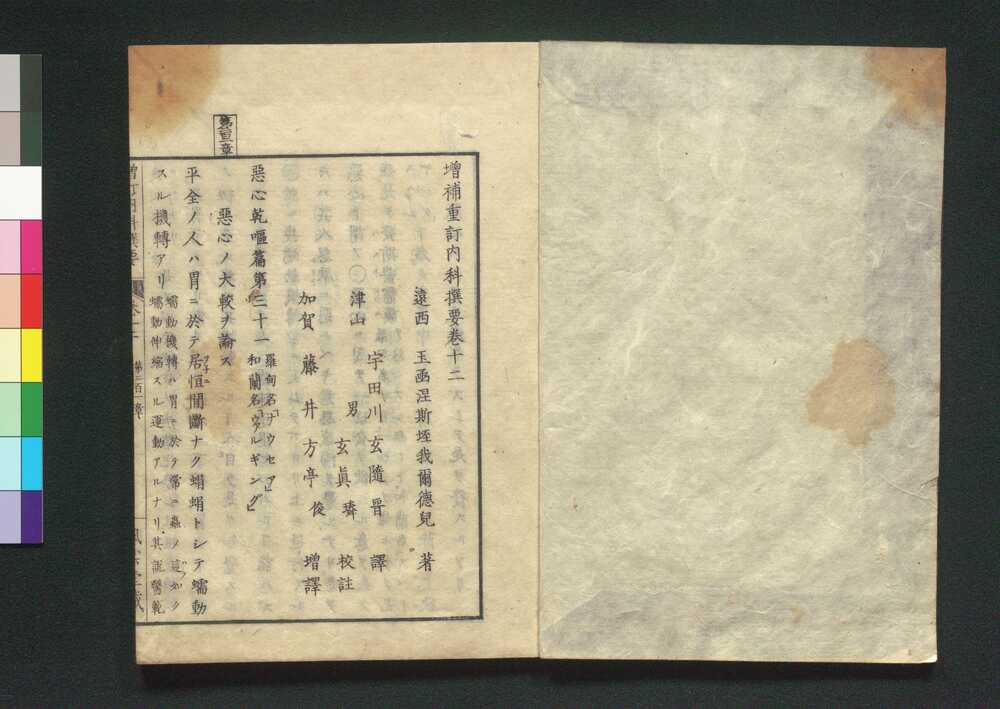 增補重訂内科撰要卷十二
遠西 玉函涅斯垤我爾德兒 著
宇田川玄隨晋 譯
津山
男 玄眞璘 校註
加賀 藤井方亭俊 增譯
惡心乾嘔篇第三十一 羅甸名「ナウセア」
和蘭名「ワルギング」
惡心ノ大較ヲ論ス
第二百一章
平全ノ人ハ胃ニ於テ居恒間斷ナク蝹蝹トシテ蠕動
スル機轉アリ 蠕動機轉ハ胃ニ於テ常ニ蟲ノ
蠕動伸縮スル運動アルナリ其説醫範
增訂内科撰要 第二百一章